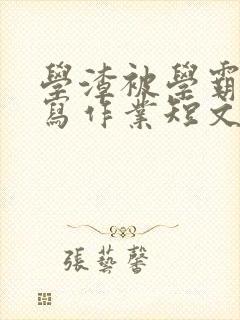 學渣被學霸
寫作業短文
張藝馨